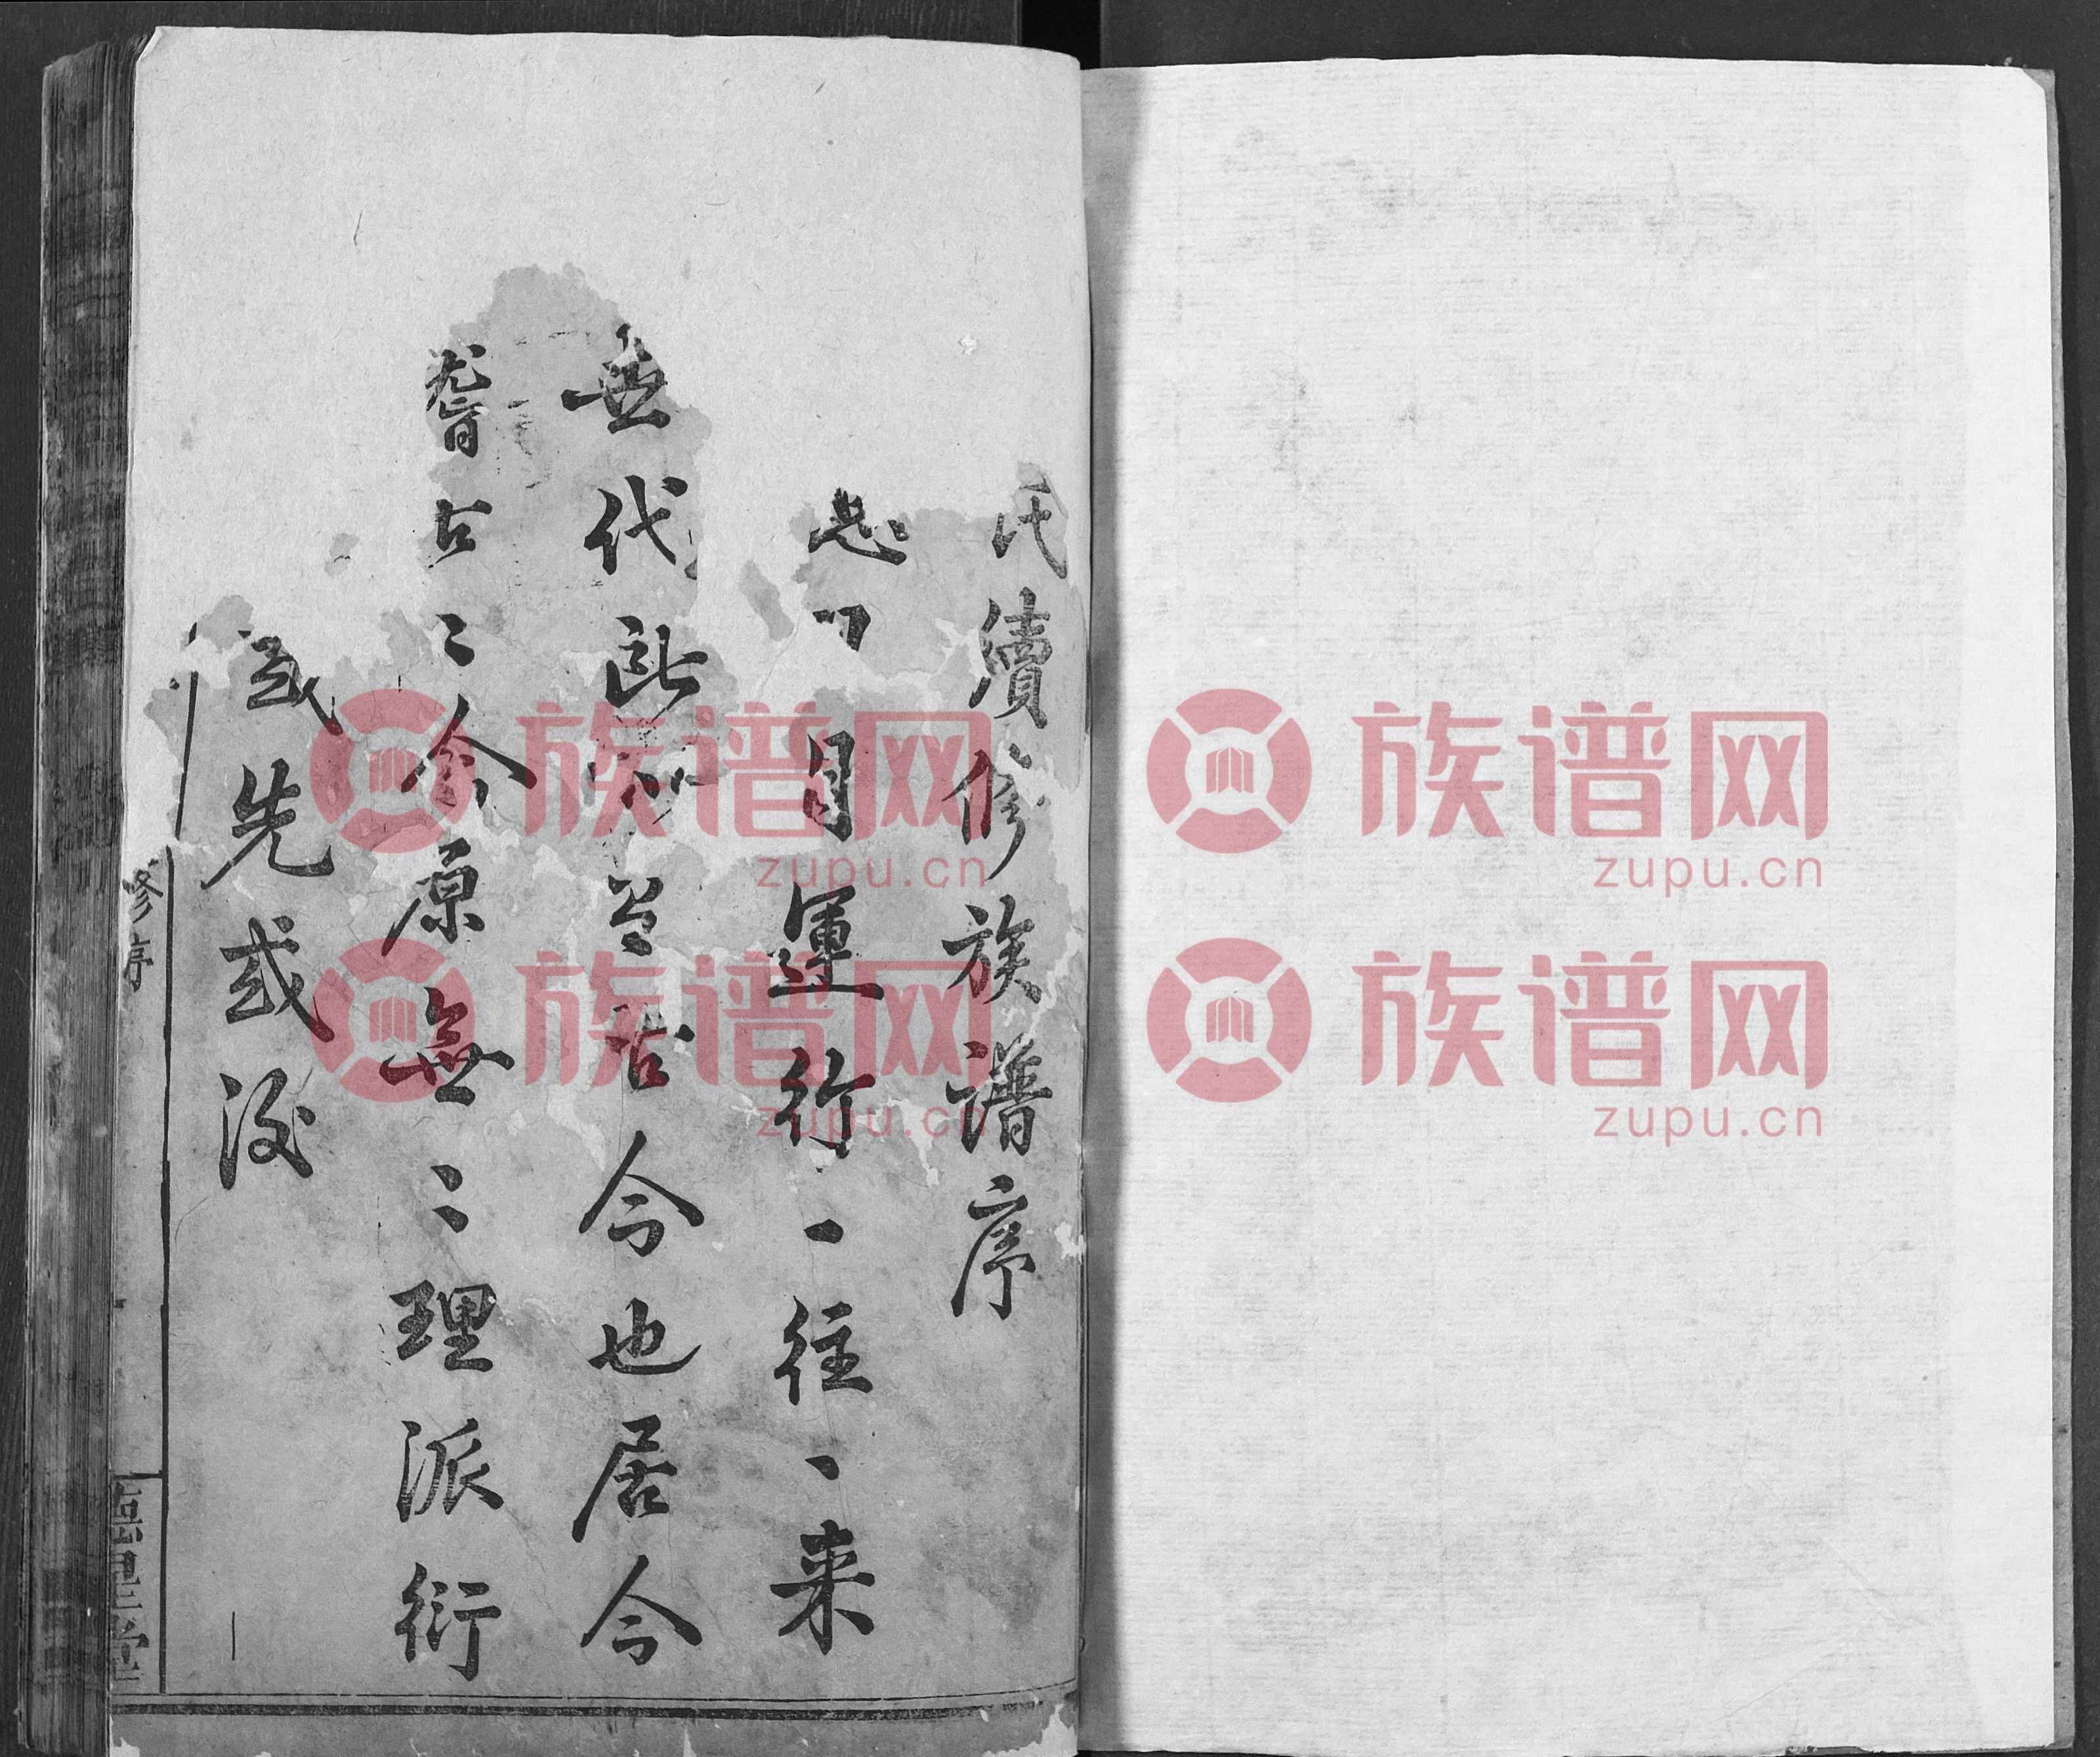 氏續修族譜序
日運行一往一来
無代此知 居今也居今
稽古之念原無之理派衍
或先或後
修序
堂
族谱网
zupu.cn
族谱网
zupu.cn
族谱网
zupu.cn
族谱网
zupu.cn